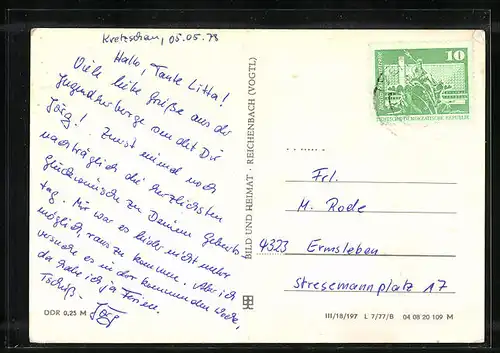 Kretzschau, 05.05.78
Hallo, Tante Litta!
Viele liebe Grüße aus der
Jugendherberge sendet Dir
Jörg! Zunst einmal noch
nachträglich die herzlichsten
Glückwünsche zu Deinem Geburts-
tag. Mir war es leider nicht mehr
möglich, raus zu kommen. Aber ich
versuche es in der kommenden Woche,
da habe ich ja Ferien.
Tschüß. Jörg
DDR 0,25 M
BILD UND HEIMAT · REICHENBACH (VOGTL)
10
DEUTSCHE DEMOKRATISCHE REPUBLIK
Frl.
M. Rode
4323 Ermsleben
Stresemannplatz 17
III/18/197 L 7/77/B 04 08 20 109 M